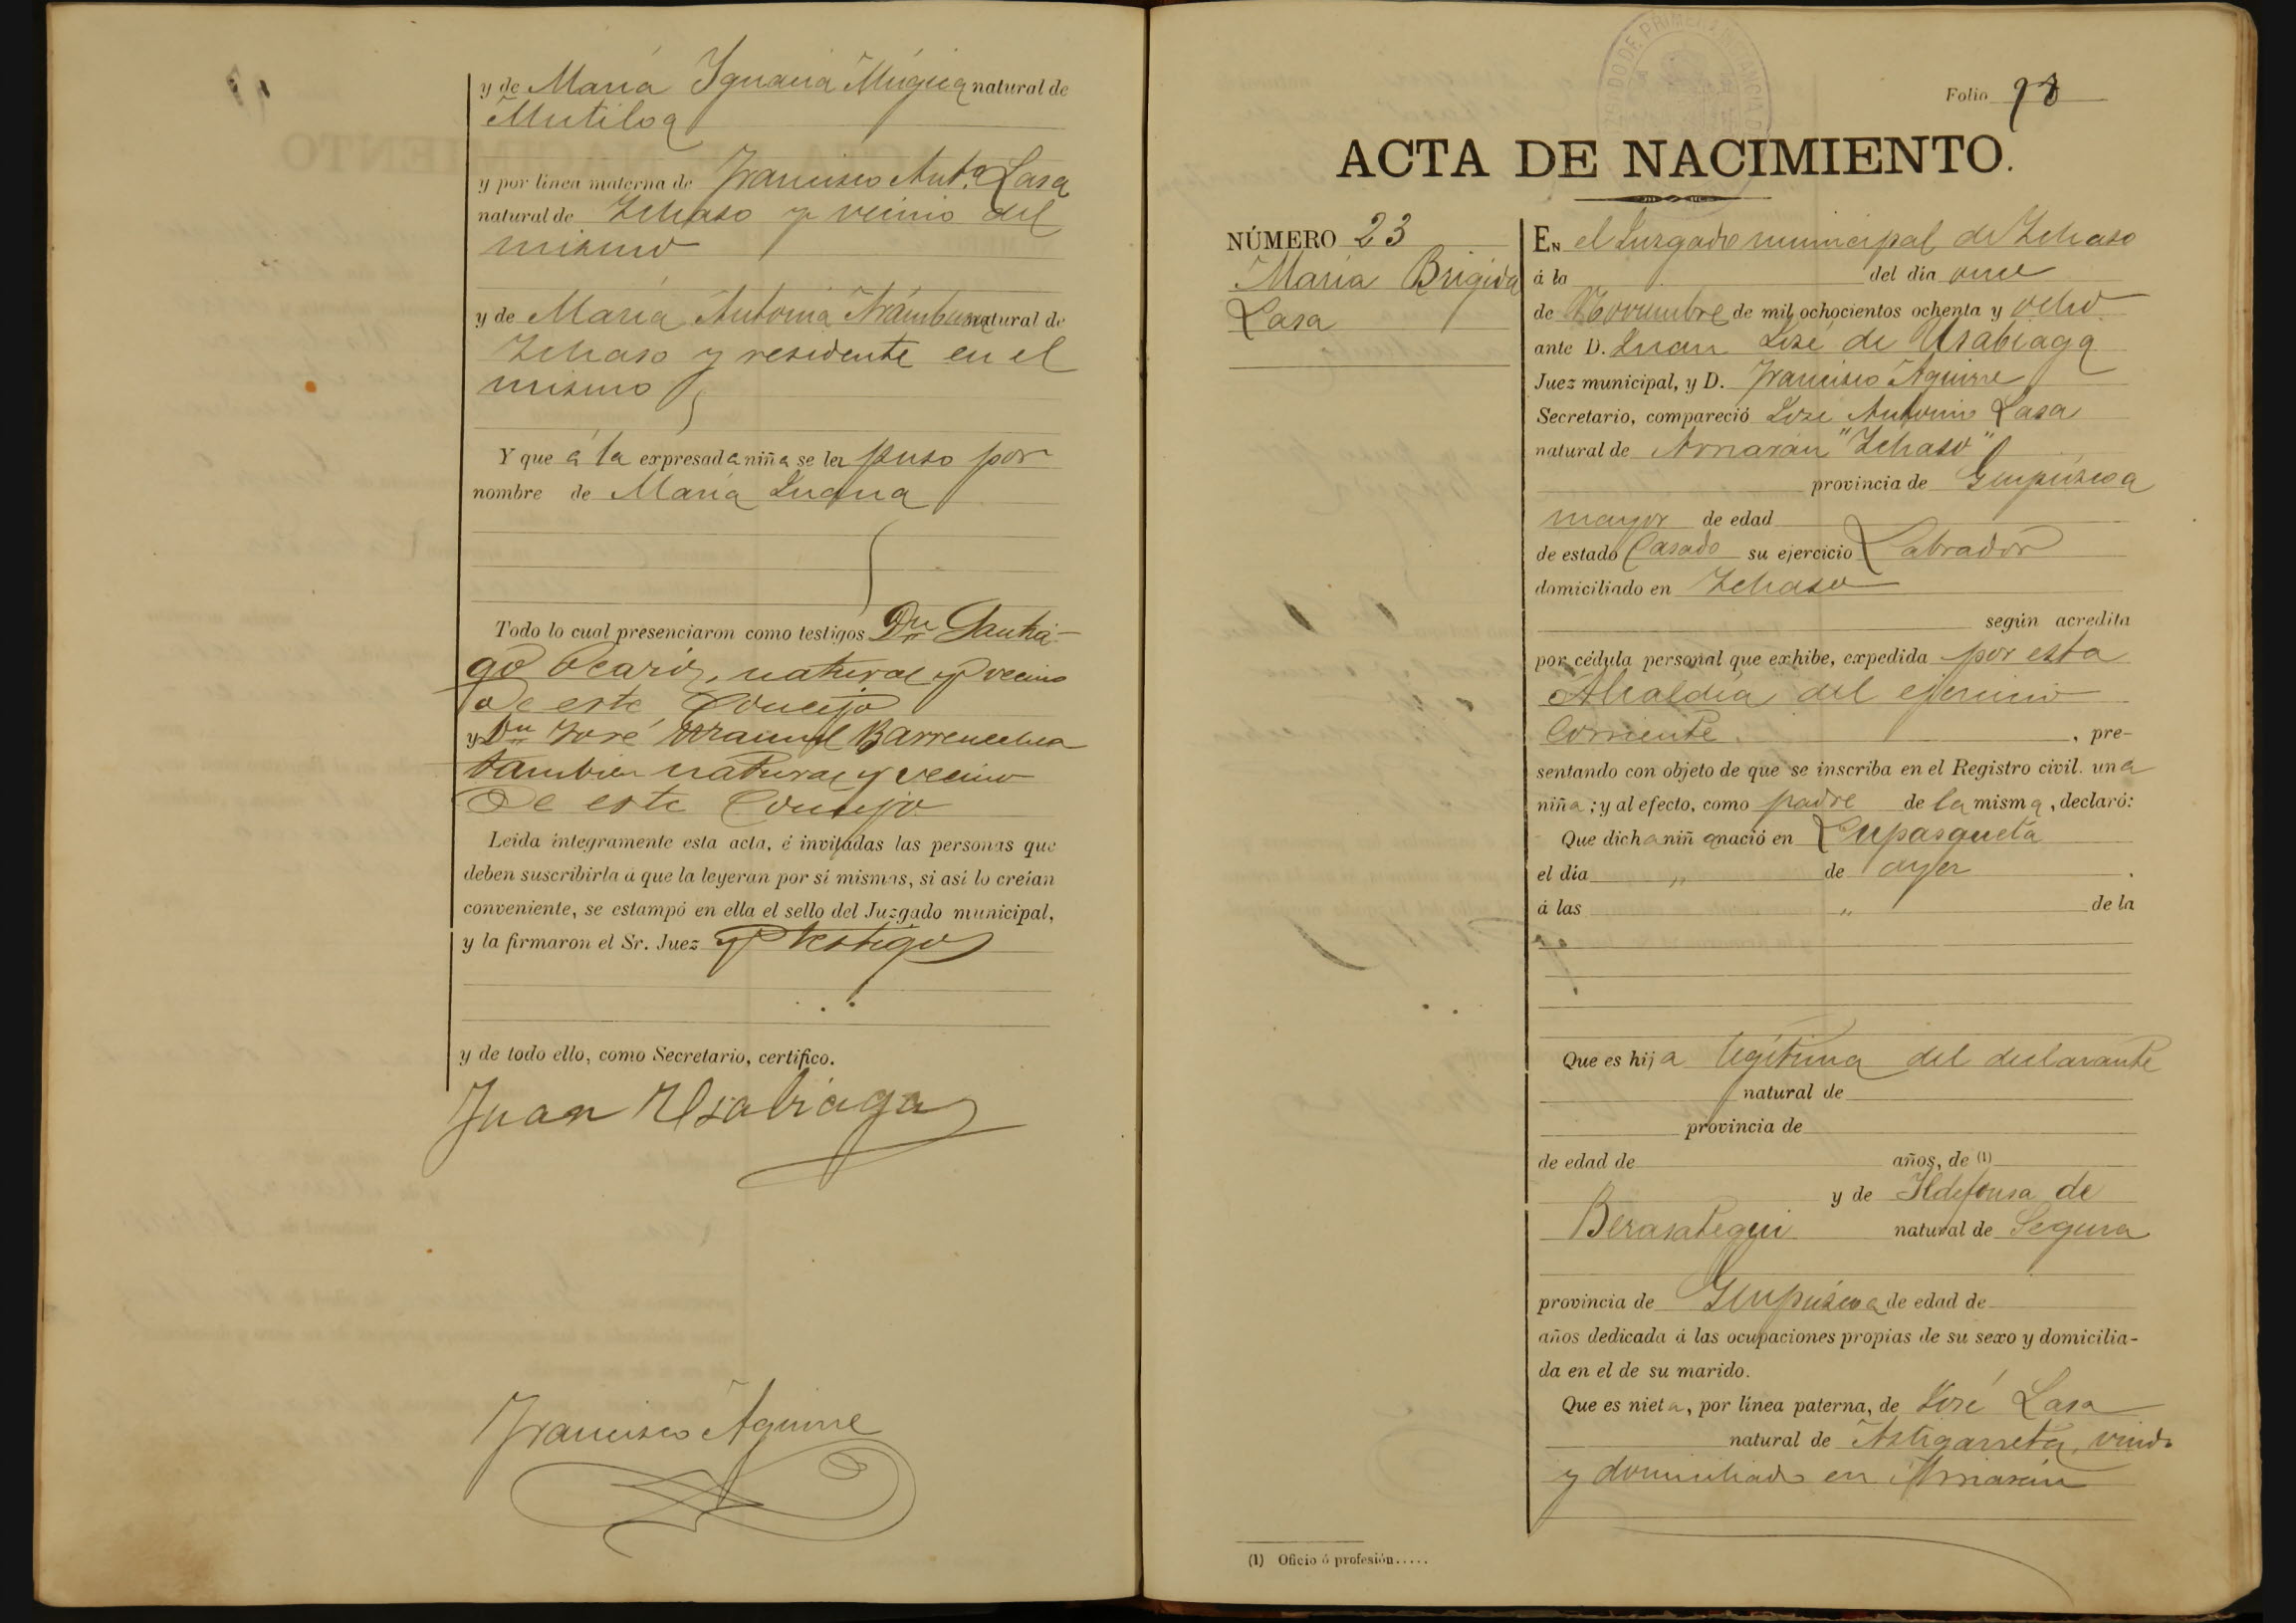 y de María Ygnacia Múgica natural de
Mutiloa
y por línea materna de Francisco Antº Lasa
natural de Ichaso y vecino del
mismo
y de María Antonia Aramburu natural de
Ichaso y residente en el
mismo
Y que á la expresada niña se le puso por
nombre de María Juana
Todo lo cual presenciaron como testigos Dn Santia-
go Ocariz, natural y vecino
de este Concejo
y Dn José Manuel Barrenechea
tambien natural y vecino
De este Concejo
Leida íntegramente esta acta, é invitadas las personas que
deben suscribirla á que la leyeran por sí mismas, si así lo creían
conveniente, se estampó en ella el sello del Juzgado municipal,
y la firmaron el Sr. Juez y testigos
y de todo ello, como Secretario, certifico.
Juan Usabiaga
Francisco Aguirre
Folio 98
ACTA DE NACIMIENTO.
NÚMERO 23
María Brígida
Lasa
EN el Juzgado municipal de Ichaso
á la del dia once
de Noviembre de mil ochocientos ochenta y ocho
ante D. Juan José de Usabiaga
Juez municipal, y D. Francisco Aguirre
Secretario, compareció José Antonio Lasa
natural de Arriarán "Ichaso"
provincia de Guipúzcoa
mayor de edad
de estado Casado su ejercicio Labrador
domiciliado en Ichaso
según acredita
por cédula personal que exhibe, expedida por esta
Alcaldía del ejercicio
corriente , pre-
sentando con objeto de que se inscriba en el Registro civil. una
niña ; y al efecto, como padre de la misma, declaró:
Que dicha niña nació en Lupasqueta
el día " de ayer .
á las " de la
Que es hija legítima del declarante
natural de
provincia de
de edad de años, de (1)
y de Ildefonsa de
Berasategui natural de Segura
provincia de Guipúzcoa de edad de
años dedicada á las ocupaciones propias de su sexo y domicilia-
da en el de su marido.
Que es nieta, por línea paterna, de José Lasa
natural de Astigarreta, viudo
y domiciliado en Arriarán
(1) Oficio ó profesión.....